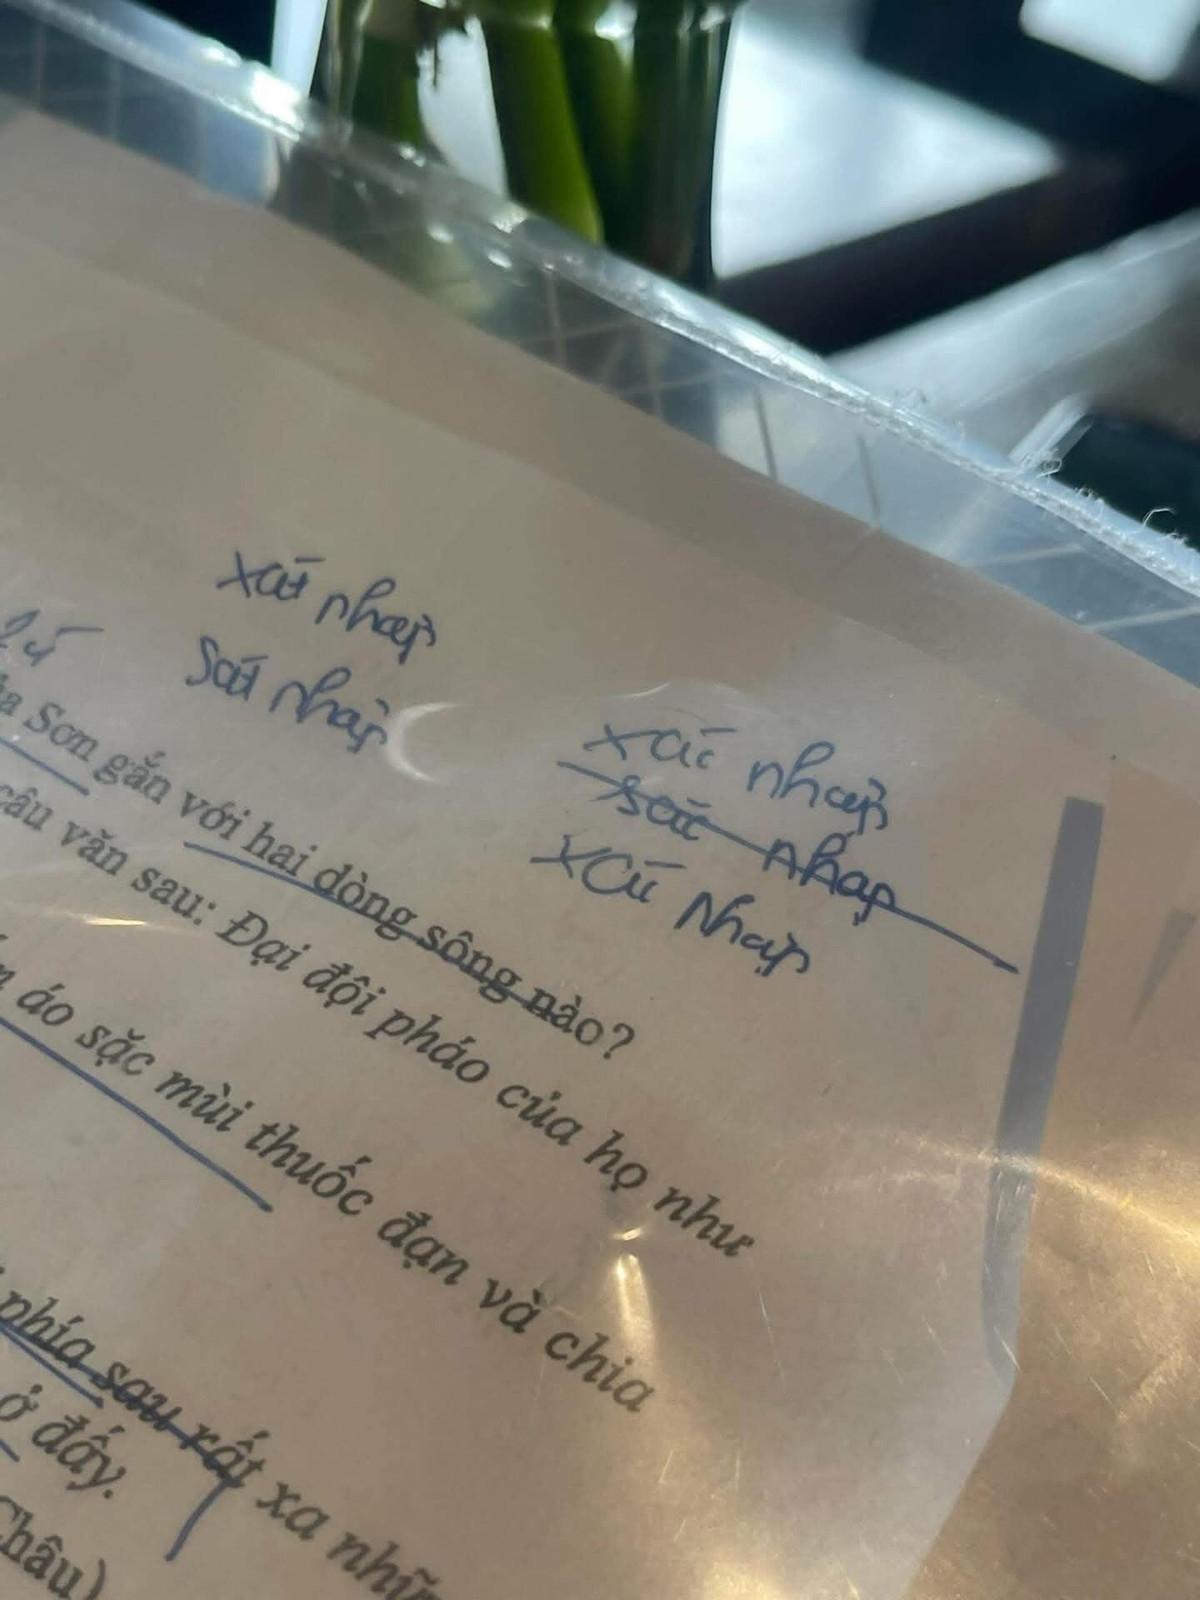 xát nhập
sát nhập
xác nhập
sác nhập
xác nhập
Sơn gắn với hai dòng sông nào?
câu văn sau: Đại đội pháo của họ như
áo sặc mùi thuốc đạn và chia
phía sau rất xa
ở đấy.
Châu)